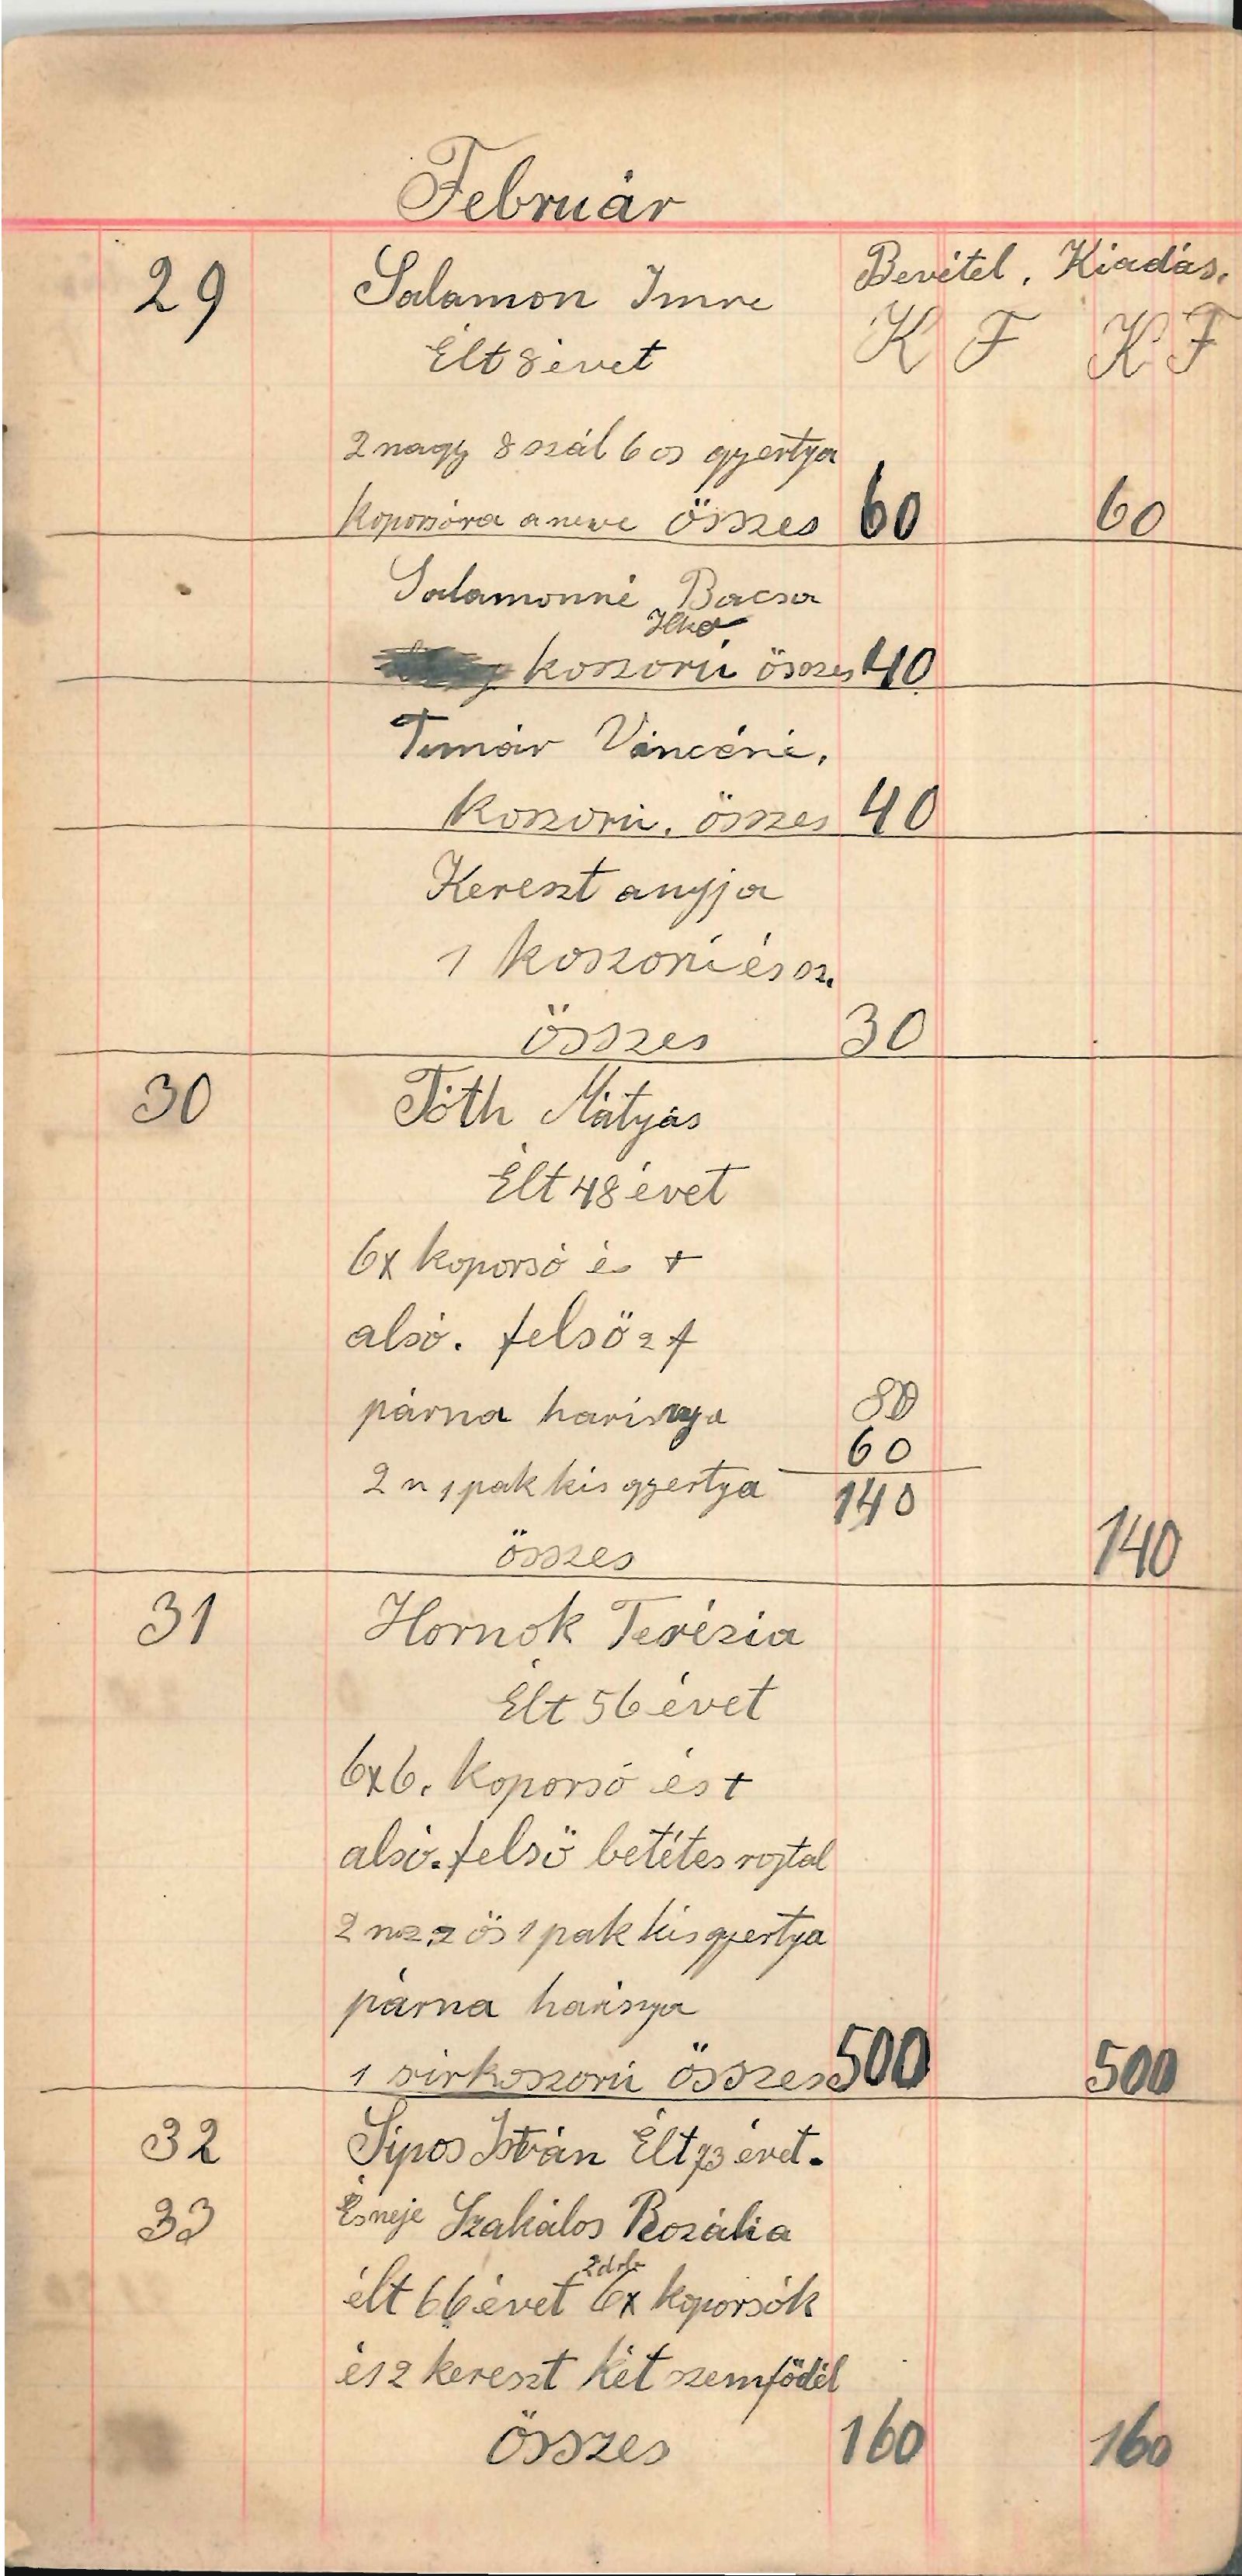 Február
Bevétel. Kiadás.
29 Salamon Imre
K F K F
Élt 8 évet
2 nagy 8 szál 6 os gyertya
koporsóra a neve összes 60 60
Salamonné Bacsa
Ilka
koszorú összes 40
Timár Vincéné.
koszorú. összes 40
Kereszt anyja
1 koszorú és sz.
összes 30
30 Tóth Mátyás
Élt 48 évet
6x koporsó és +
alsó. felső 2 f
párna harisnya 80
60
2 n 1 pak kis gyertya 140
összes 140
31 Hornok Terézia
Élt 56 évet
6x6. koporsó és +
alsó. felső betétes rojtal
2 ös 1 pak kis gyertya
párna harisnya
1 sirkoszorú összes 500 500
32 Sipos István Élt 73 évet.
33 És neje Szakálos Rozália
2 drb
élt 66 évet 6x koporsók
és 2 kereszt két szemfödél
összes 160 160